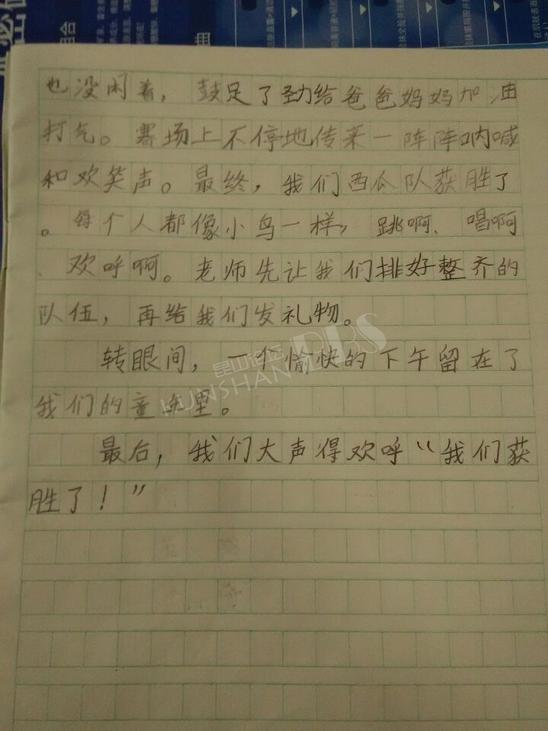 也没闲着，鼓足了劲给爸爸妈妈加油
打气。赛场上不停地传来一阵阵呐喊
和欢笑声。最终，我们西瓜队获胜了
。每个人都像小鸟一样，跳啊、唱啊
、欢呼啊。老师先让我们排好整齐的
队伍，再给我们发礼物。
转眼间，一个愉快的下午留在了
我们的童年里。
最后，我们大声得欢呼“我们获
胜了！”
昆山论坛
KUNSHAN BBS